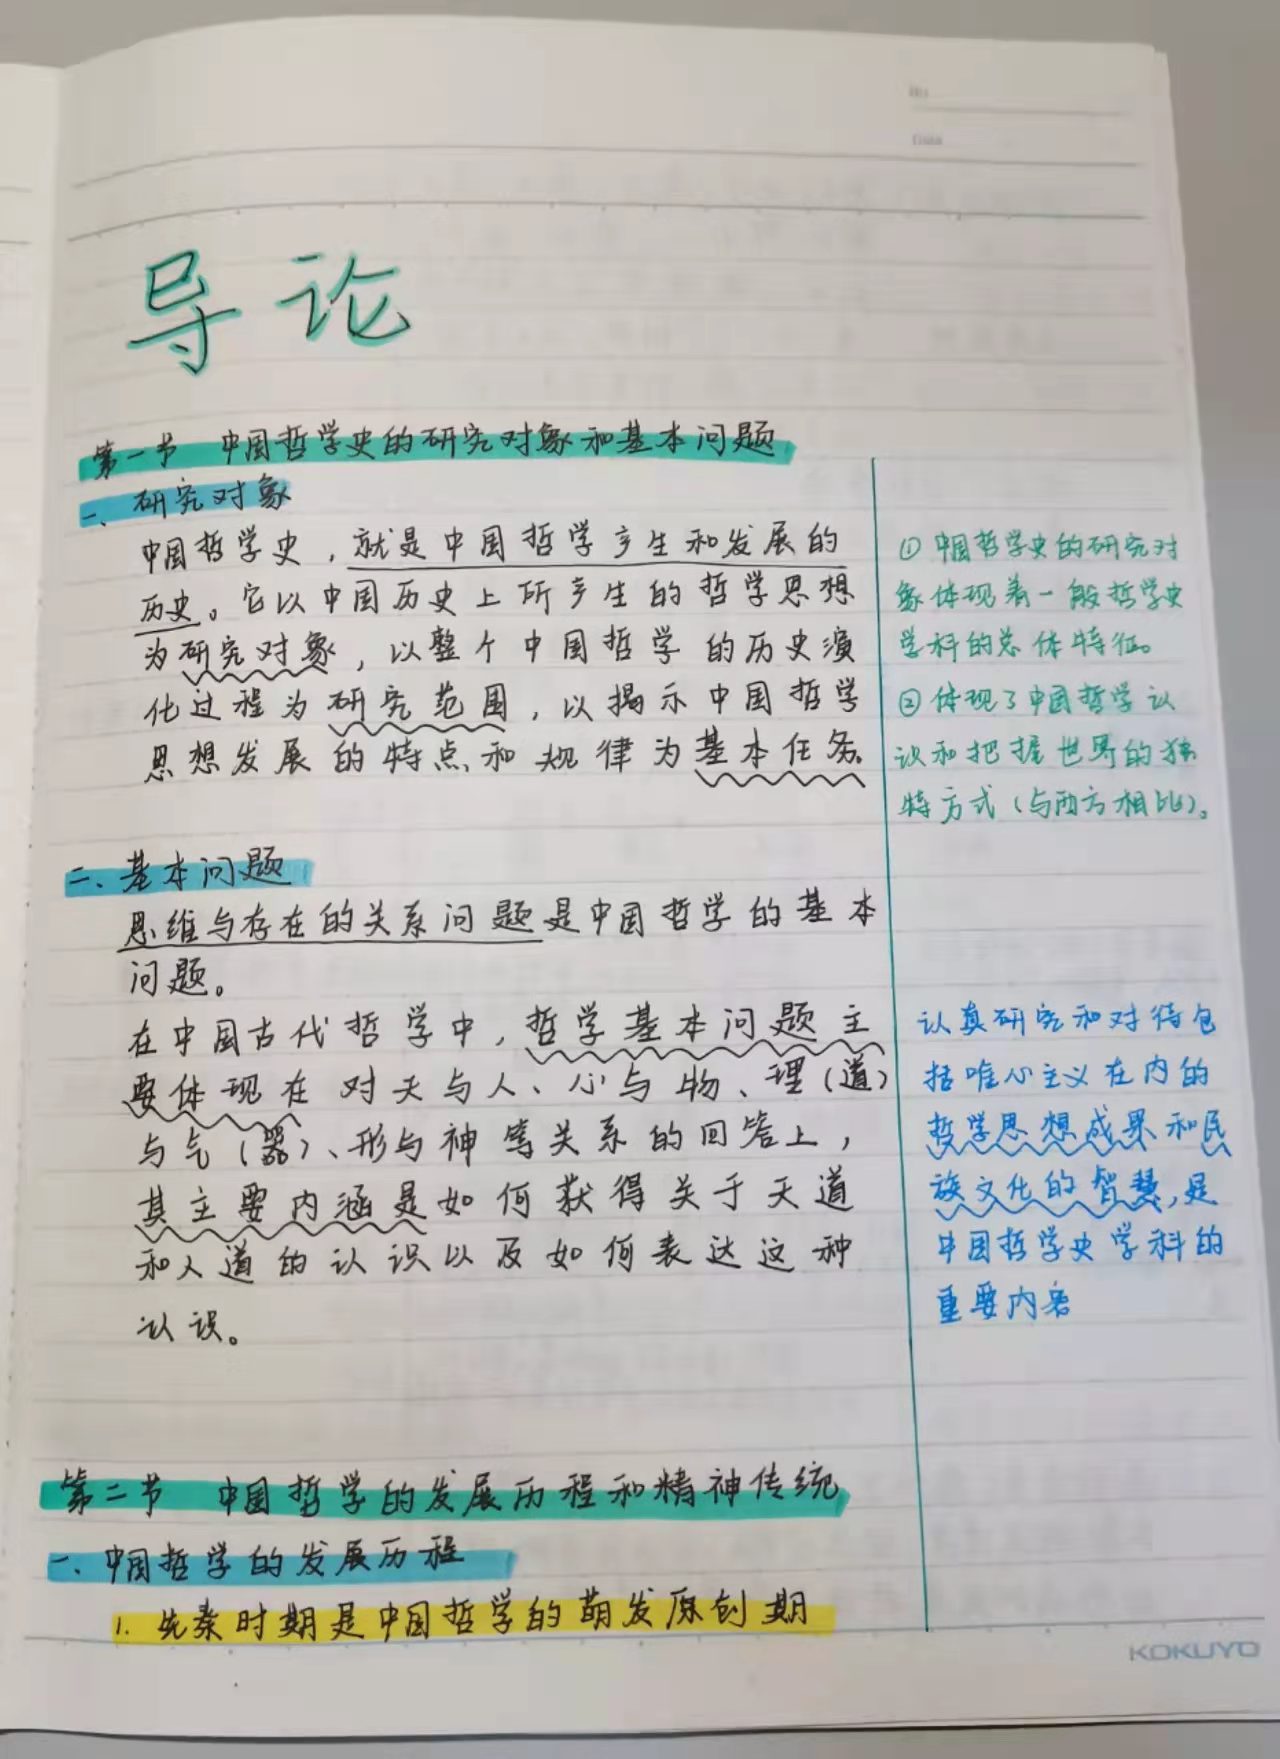 No.
Date
导论
第一节 中国哲学史的研究对象和基本问题
一、研究对象
中国哲学史，就是中国哲学产生和发展的
历史。它以中国历史上所产生的哲学思想
为研究对象，以整个中国哲学的历史演
化过程为研究范围，以揭示中国哲学
思想发展的特点和规律为基本任务。
①中国哲学史的研究对
象体现着一般哲学史
学科的总体特征。
②体现了中国哲学认
识和把握世界的独
特方式（与西方相比）。
二、基本问题
思维与存在的关系问题是中国哲学的基本
问题。
在中国古代哲学中，哲学基本问题主
要体现在对天与人、心与物、理（道）
与气（器）、形与神等关系的回答上，
其主要内涵是如何获得关于天道
和人道的认识以及如何表达这种
认识。
认真研究和对待包
括唯心主义在内的
哲学思想成果和民
族文化的智慧，是
中国哲学史学科的
重要内容
第二节 中国哲学的发展历程和精神传统
一、中国哲学的发展历程
1. 先秦时期是中国哲学的萌发原创期
KOKUYO